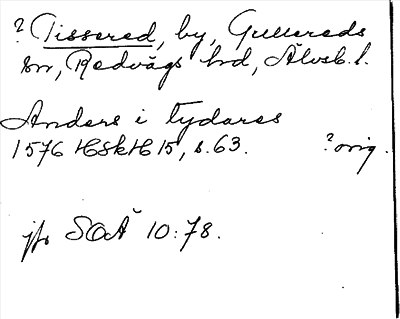 ? Tissered, by, Gullereds
sn, Redvägs hd, Älvsb. l.
Anders i Tydares
1576 HSkH 15, s. 63. ? orig.
jfr SOÄ 10:78.